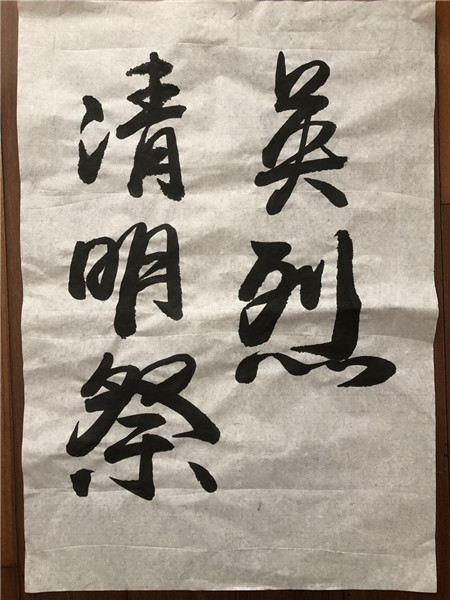 英烈
清明祭